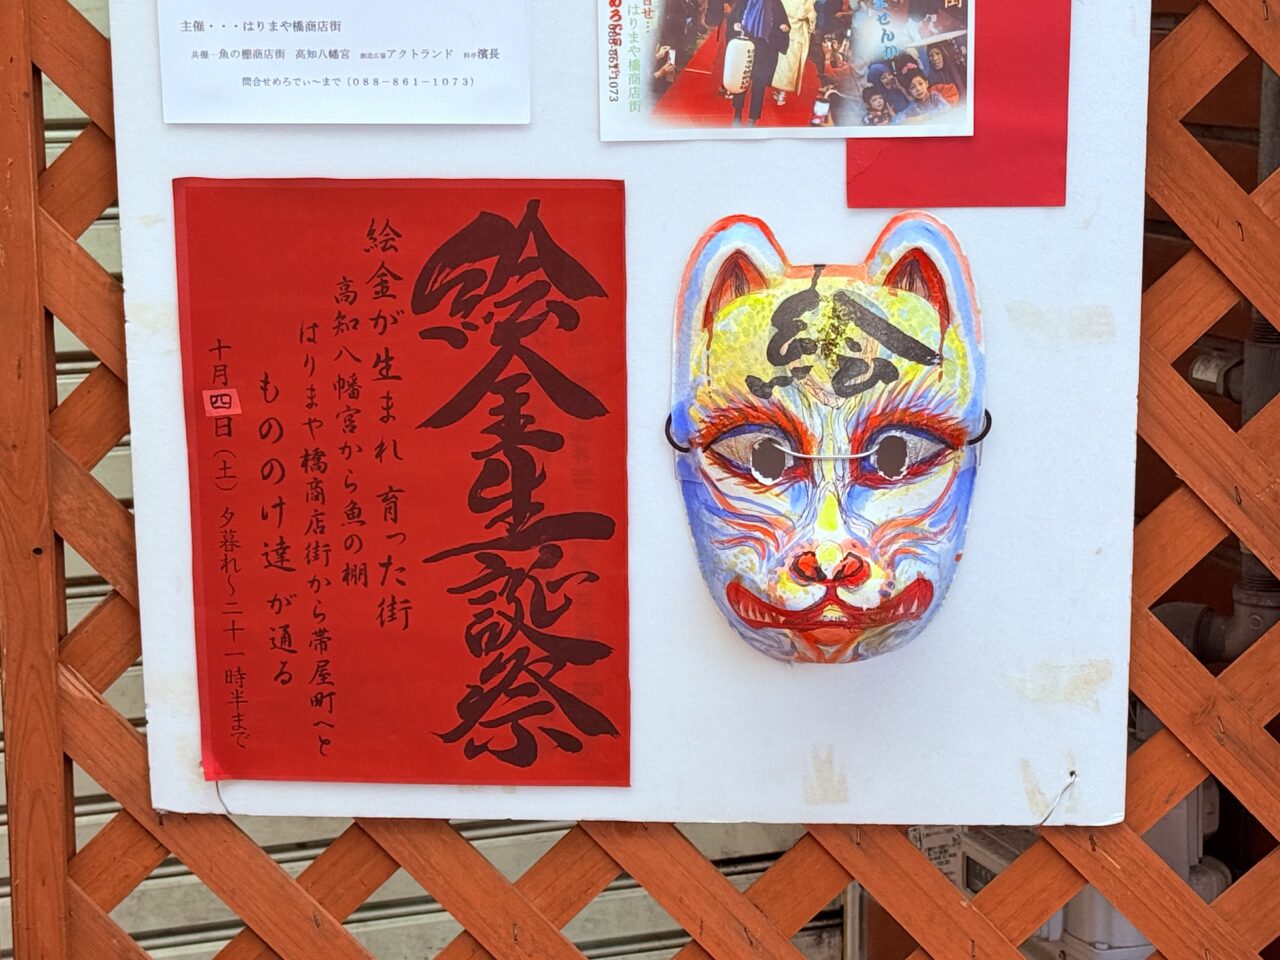 主催・・・はりまや橋商店街
共催・・魚の棚商店街 高知八幡宮 創造広場アクトランド 料亭濱長
問合せめろでぃ〜まで(088-861-1073)
はりまや橋商店街
088-861-1073
ませんか
絵金生誕祭
絵金が生まれ育った街
高知八幡宮から魚の棚
はりまや橋商店街から帯屋町へと
もののけ達が通る
十月四日(土)夕暮れ〜二十一時半まで
絵